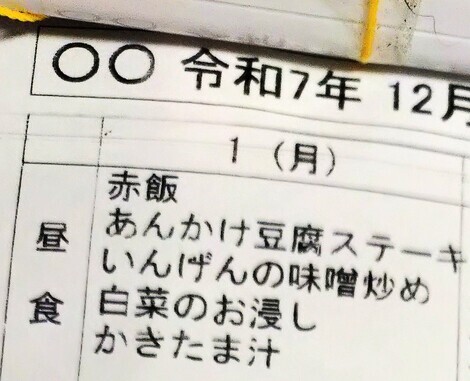 〇〇 令和7年 12月
1 (月)
昼食
赤飯
あんかけ豆腐ステーキ
いんげんの味噌炒め
白菜のお浸し
かきたま汁